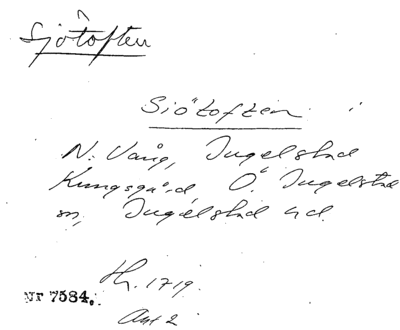 Sjötoften
Siötoften i
N. Vång, Ingelstad
Kungsgård Ö. Ingelstad
sn, Ingelstad hd.
Nr 7584. Th. 1719.
Akt 2